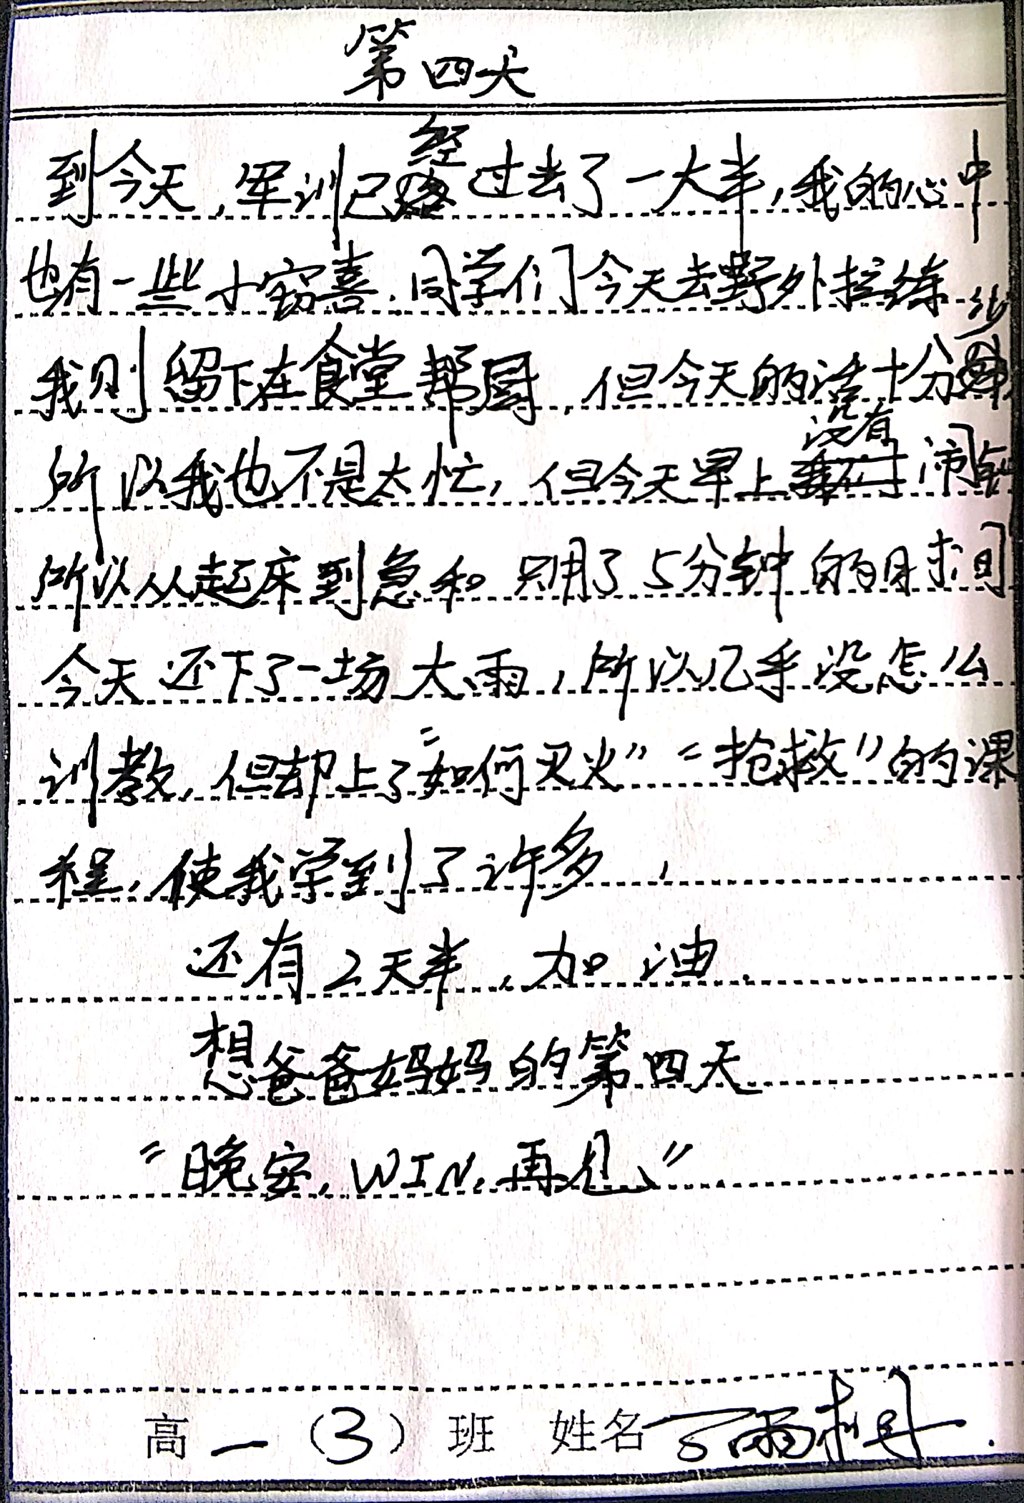 第四天
到今天,军训已经过去了一大半,我的心中
也有一些小窃喜.同学们今天去野外拉练
我则留下在食堂帮厨,但今天的活十分少
所以我也不是太忙,但今天早上没有闹钟
所以从起床到急和只用了5分钟的时间
今天还下了一场大雨,所以几乎没怎么
训教,但却上了“如何灭火”“抢救”的课
程,使我学到了许多,
还有2天半,加油.
想爸爸妈妈的第四天
“晚安,WIN,再见”
高一(3)班 姓名